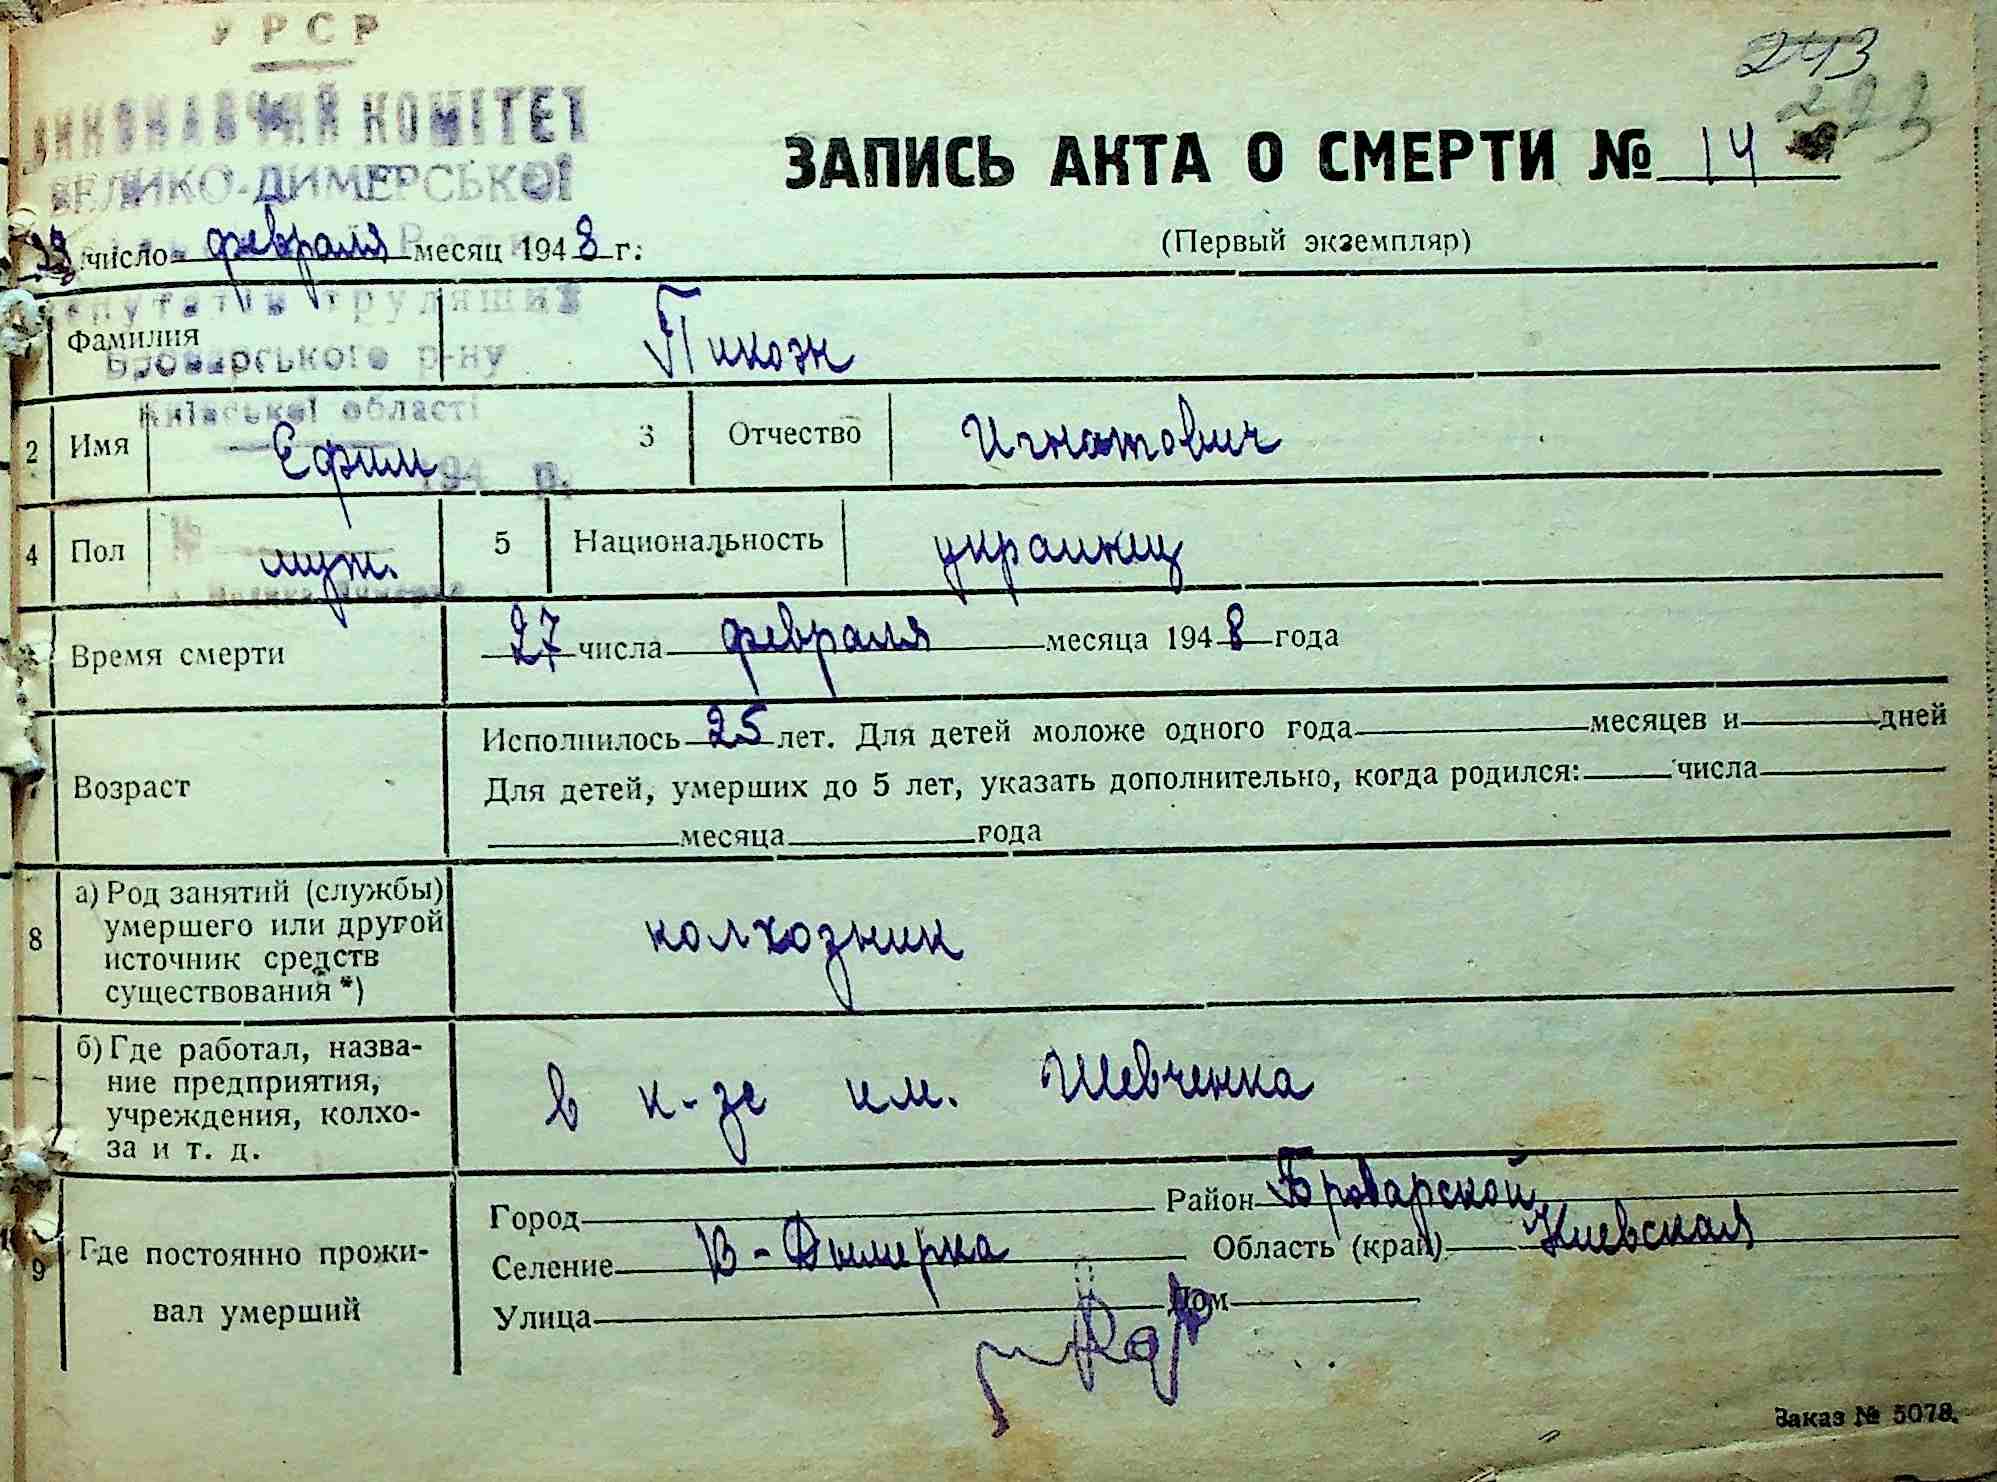 УРСР
243
ВИКОНАВЧИЙ КОМІТЕТ
223
ЗАПИСЬ АКТА О СМЕРТИ № 14
ВЕЛИКО-ДИМЕРСЬКОЇ
число февраля месяц 1948 г.
(Первый экземпляр)
депутатів трудящих
Фамилия Пикож
Броварського р-ну
Київської області
2 Имя Ефим 3 Отчество Игнатович
194 р.
4 Пол муж. 5 Национальность украинец
№
Время смерти 27 числа февраля месяца 1948 года
Исполнилось 25 лет. Для детей моложе одного года месяцев и дней
7 Возраст
Для детей, умерших до 5 лет, указать дополнительно, когда родился: числа
месяца года
8 а) Род занятий (службы)
умершего или другой
источник средств
существования *)
колхозник
б) Где работал, назва-
ние предприятия,
учреждения, колхо-
за и т. д.
в к-зе им. Шевченка
9 Где постоянно прожи-
вал умерший
Город Район Броварской
Селение В-Дымерка Область (край) Киевская
Улица Дом
Заказ № 5078.